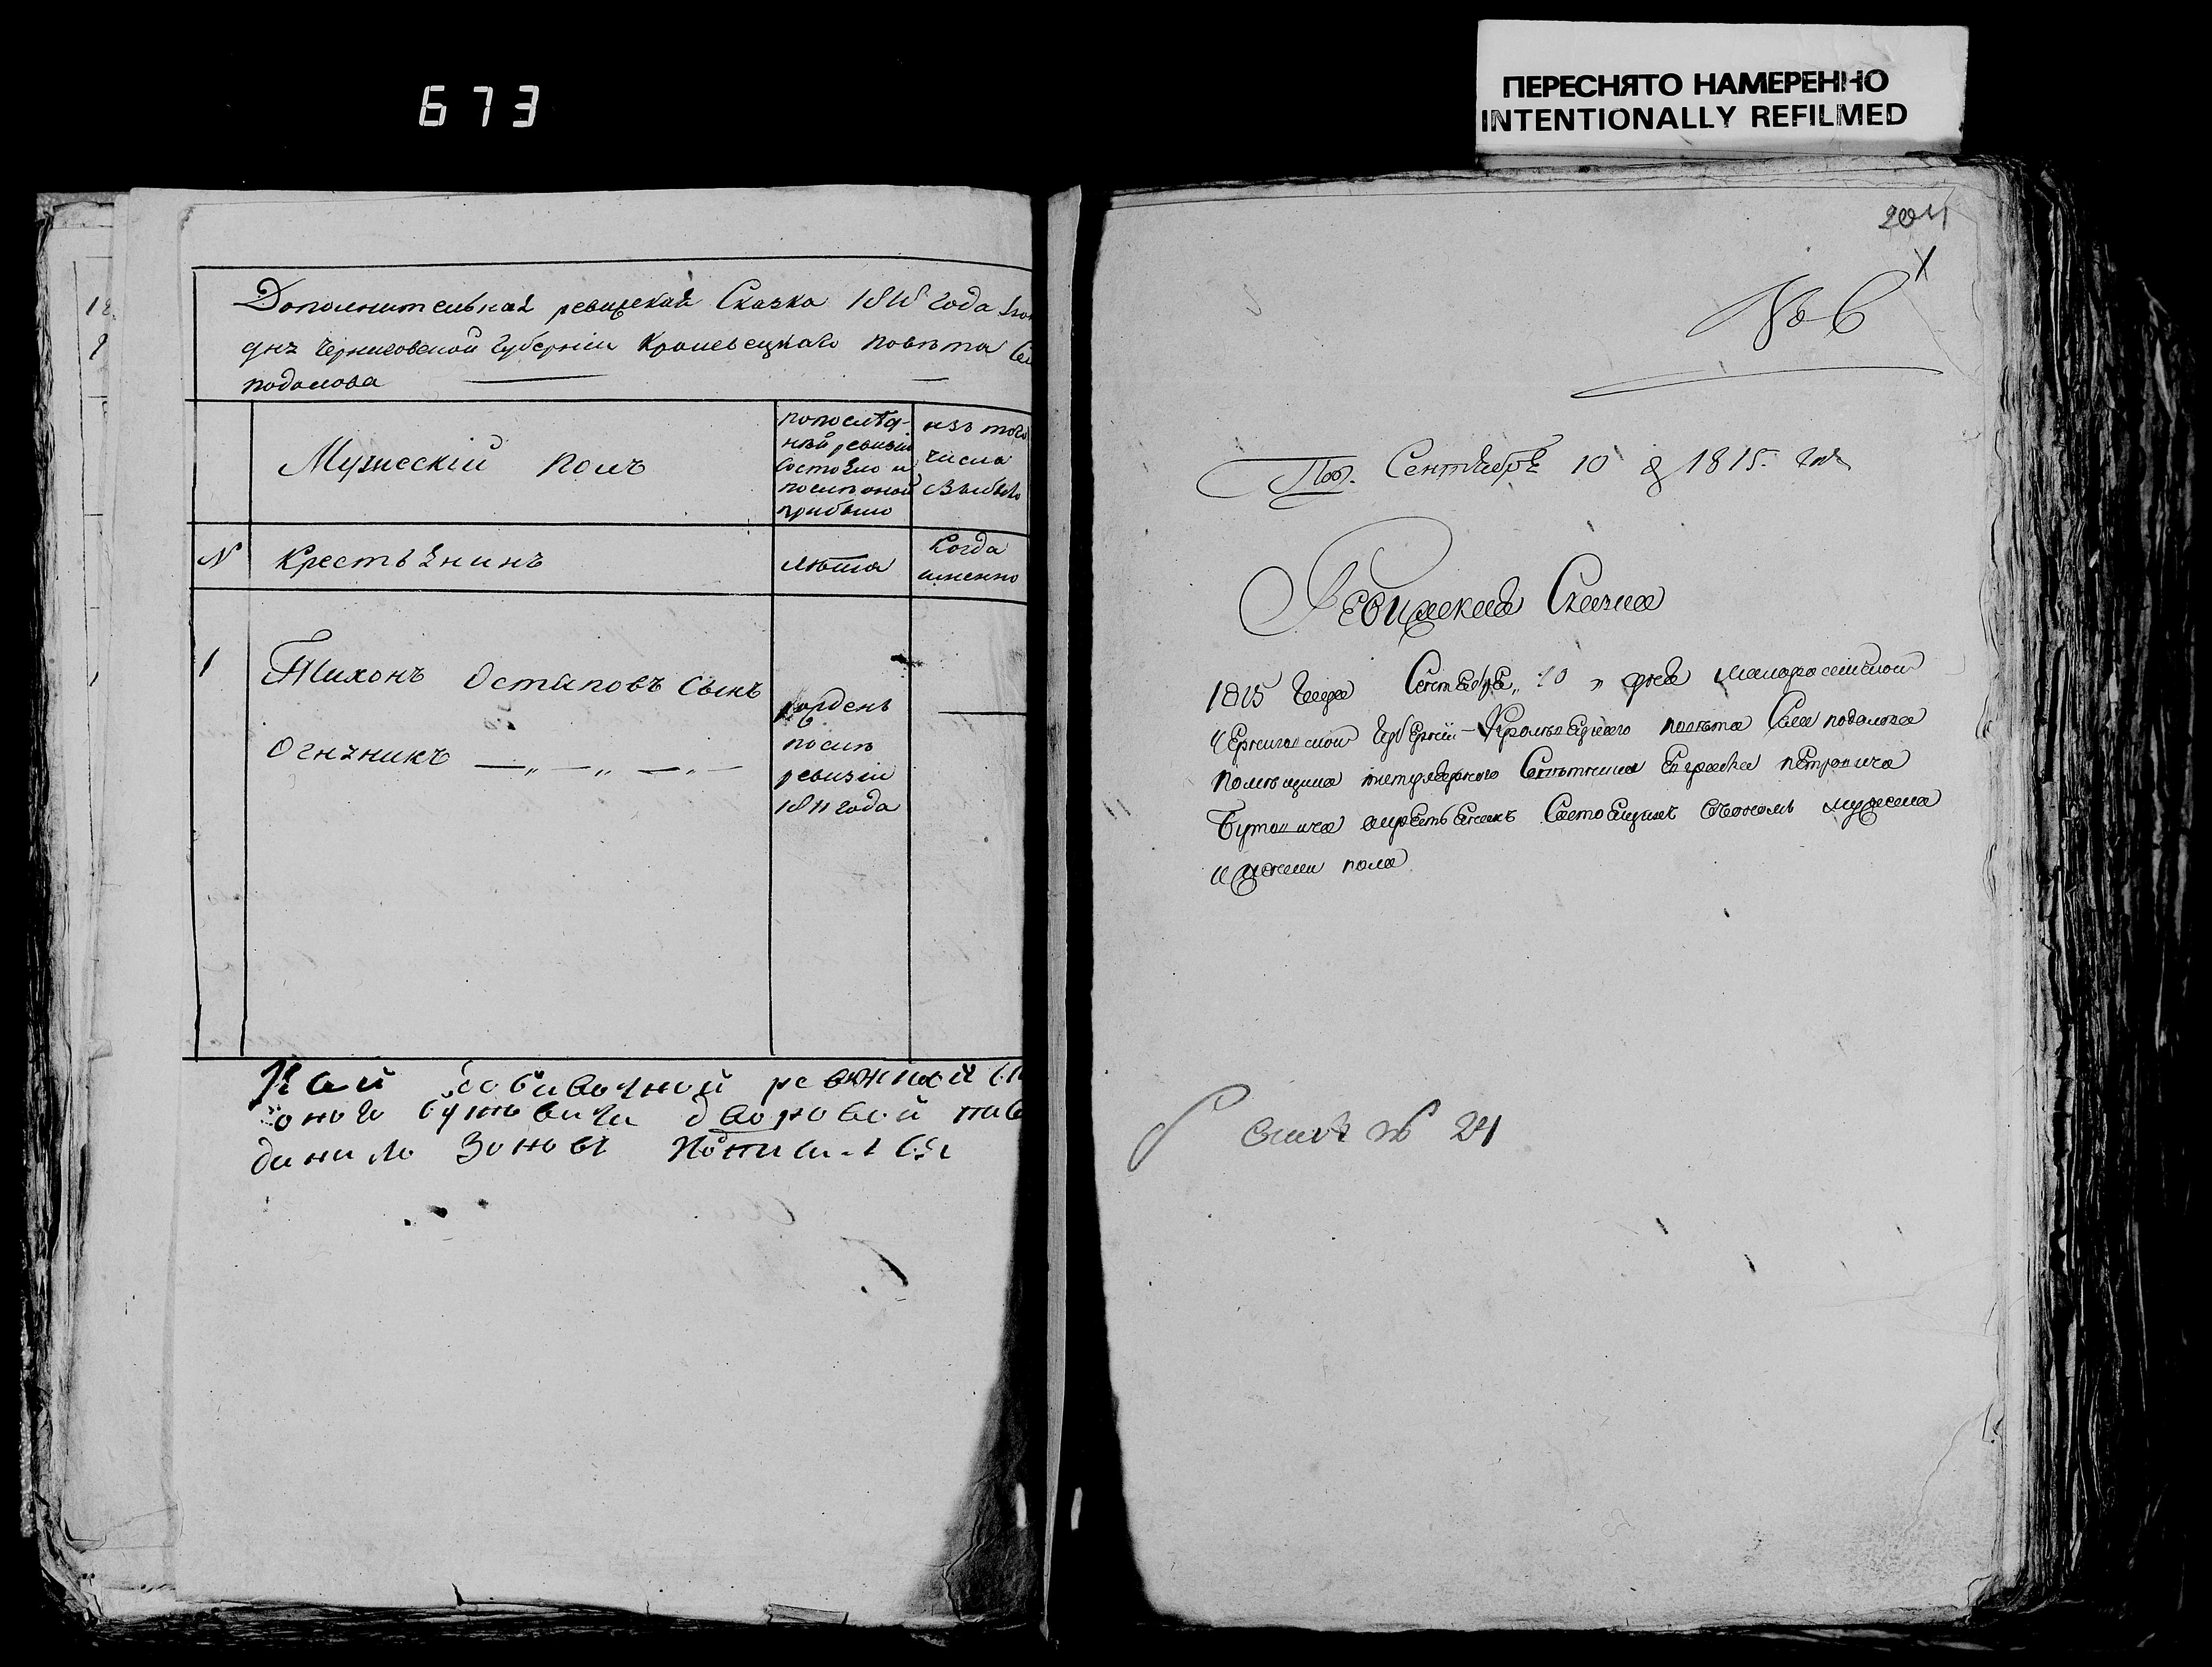 673
ПЕРЕСНЯТО НАМЕРЕННО
INTENTIONALLY REFILMED
Дополнительная ревижская Сказка 1818 года
дня Черниговской Губерніи Кролевецкаго повѣта
подолова
Мужескій полъ
попослѣд-
ней ревизіи
состояло и
послѣ оной
прибыло
изъ того
числа
выбыло
N
Крестьянинъ
лѣта
Когда
именно
1
Тихонъ Остаповъ сынъ
Огнѣникъ
рожденъ
послѣ
ревизіи
1811 года
оного Бутовича дворовой
данило
204
X
№ 6
Пол. Сентября 10 д 1815 года
Ревижская Сказка
1815 Года Сентября 10 дня малоросійской
Черниговской Губерніи Кролевецкаго повѣта Села подолова
помѣщика титулярного Совѣтника Евграфа Петровича
Бутовича окрестьянехъ Состоящихъ Свономъ мужеска
и женска пола
№ 24